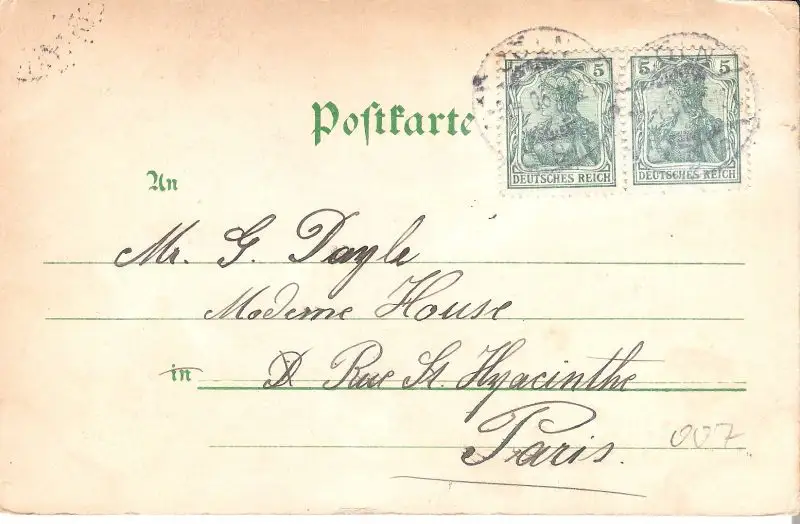 5 5
5 5
DEUTSCHES REICH
DEUTSCHES REICH
Postkarte
An
Mr. G. Dayle
Moderne House
in
Rue St. Hyacinthe
Paris.
007